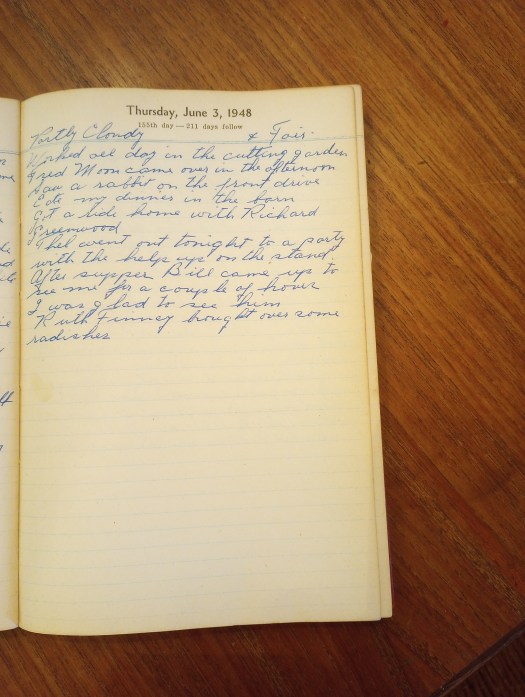 Thursday, June 3, 1948
155th day — 211 days follow
Partly Cloudy & Fair.
Worked all day in the cutting garden
Fred Moon came over in the afternoon
Saw a rabbit on the front drive
Ete my dinner in the barn
Got a ride home with Richard
Greenwood
Ethel went out tonight to a party
with the helps up on the stand.
After supper Bill came up to
see me for a couple of hours
I was glad to see him
Ruth Finney brought over some
radishes